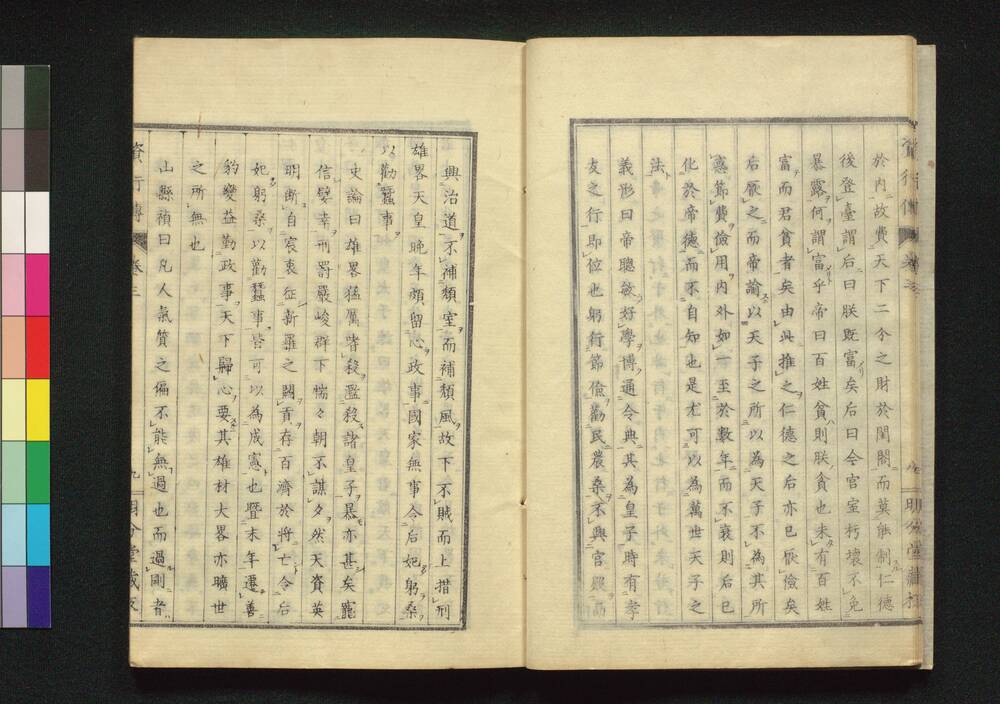 於内故費天下二分之財於閨閤而莫能制仁德
後登臺謂后曰朕既富矣后曰今宮室朽壞不免
暴露何謂富乎帝曰百姓貧則朕貧也未有百姓
富而君貧者矣由此推之仁德之后亦已厭儉矣
后厭之而帝諭以天子之所以為天子不為其所
惑節費儉用内外如一至於數年而不衰則后已
化於帝德而不自知也是尤可以為萬世天子之
法
義形曰帝聰敏好學博通令典其為皇子時有孝
友之行即位也躬行節儉勸民農桑不興宮
興治道不補頽室而補頽風故下不賊而上措刑
雄畧天皇晚年頗留心政事國家無事令后妃躬桑
以勸蠶事
史論曰雄畧猛厲嗜殺濫殺諸皇子暴亦甚矣寵
信嬖幸刑罰嚴峻群下惴々朝不謀夕然天資英
明斷自宸衷征新羅之闕貢存百濟於將亡令后
妃躬桑以勸蠶事皆可以為成憲也暨末年遷善
豹變益勤政事天下歸心要其雄材大畧亦曠世
之所無也
山縣禎曰凡人氣質之偏不能無過也而過剛者
資行傳 卷三 九 明分堂藏板